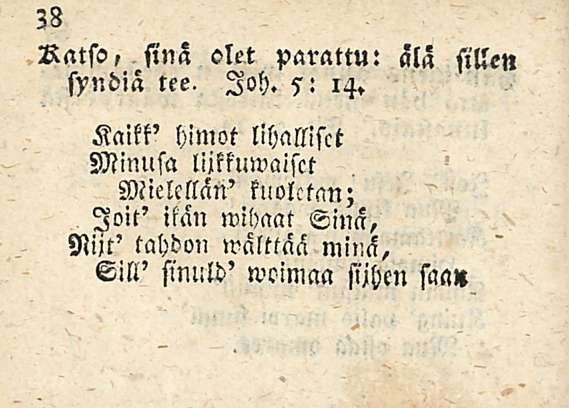 38
Katso, sinä olet parattu: älä sillen
syndiä tee. Joh. 5: 14.
Kaikk' himot lihalliset
Minusa lijkkuwaiset
Mielellän' kuoletan;
Joit' ikän wihaat Sinä,
Nijt' tahdon wälttää minä,
Sill' sinuld' woimaa sijhen saan